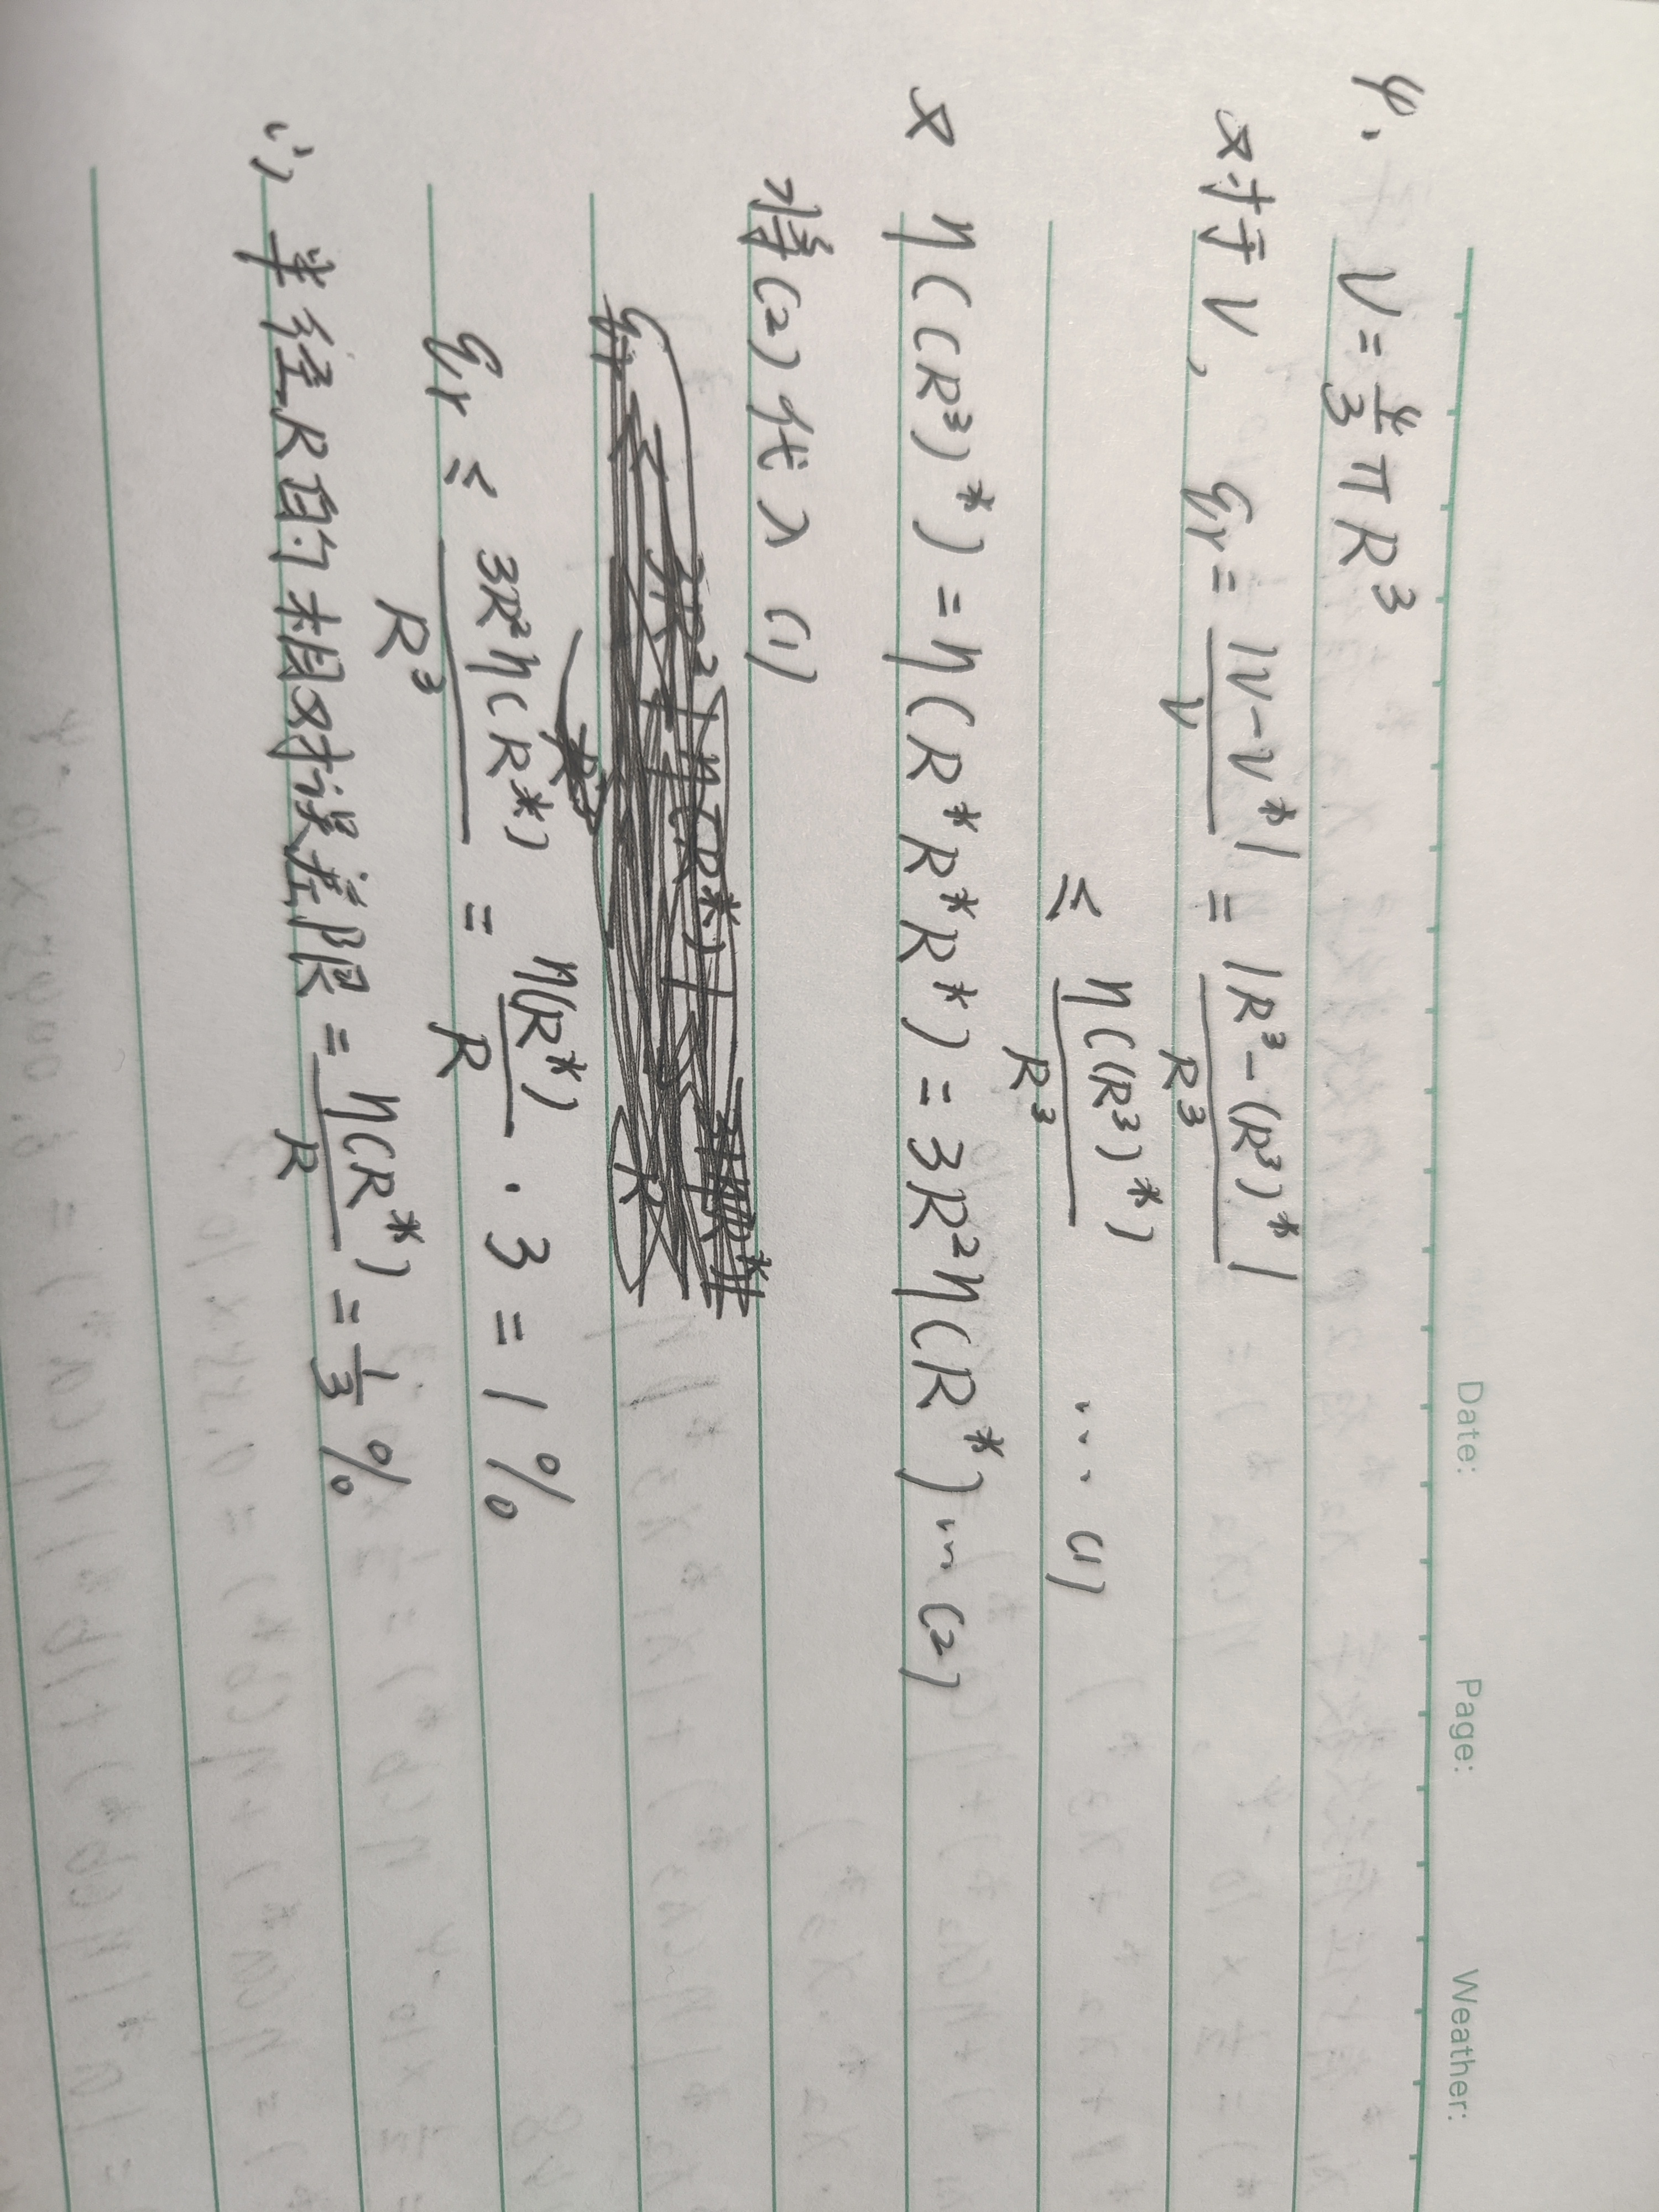 Date: Page: Weather:
4. V = 4/3 π R³
对于 V, εr = |V-V*| / V = |R³-(R³)*| / R³
≤ η((R³)*) / R³ ... (1)
又 η((R³)*) = η(R*R*R*) = 3R²η(R*) ... (2)
将(2)代入(1)
εr ≤ 3R²η(R*) / R³ = η(R*) / R · 3 = 1%
∴ 半径R的相对误差限 = η(R*) / R = 1/3 %